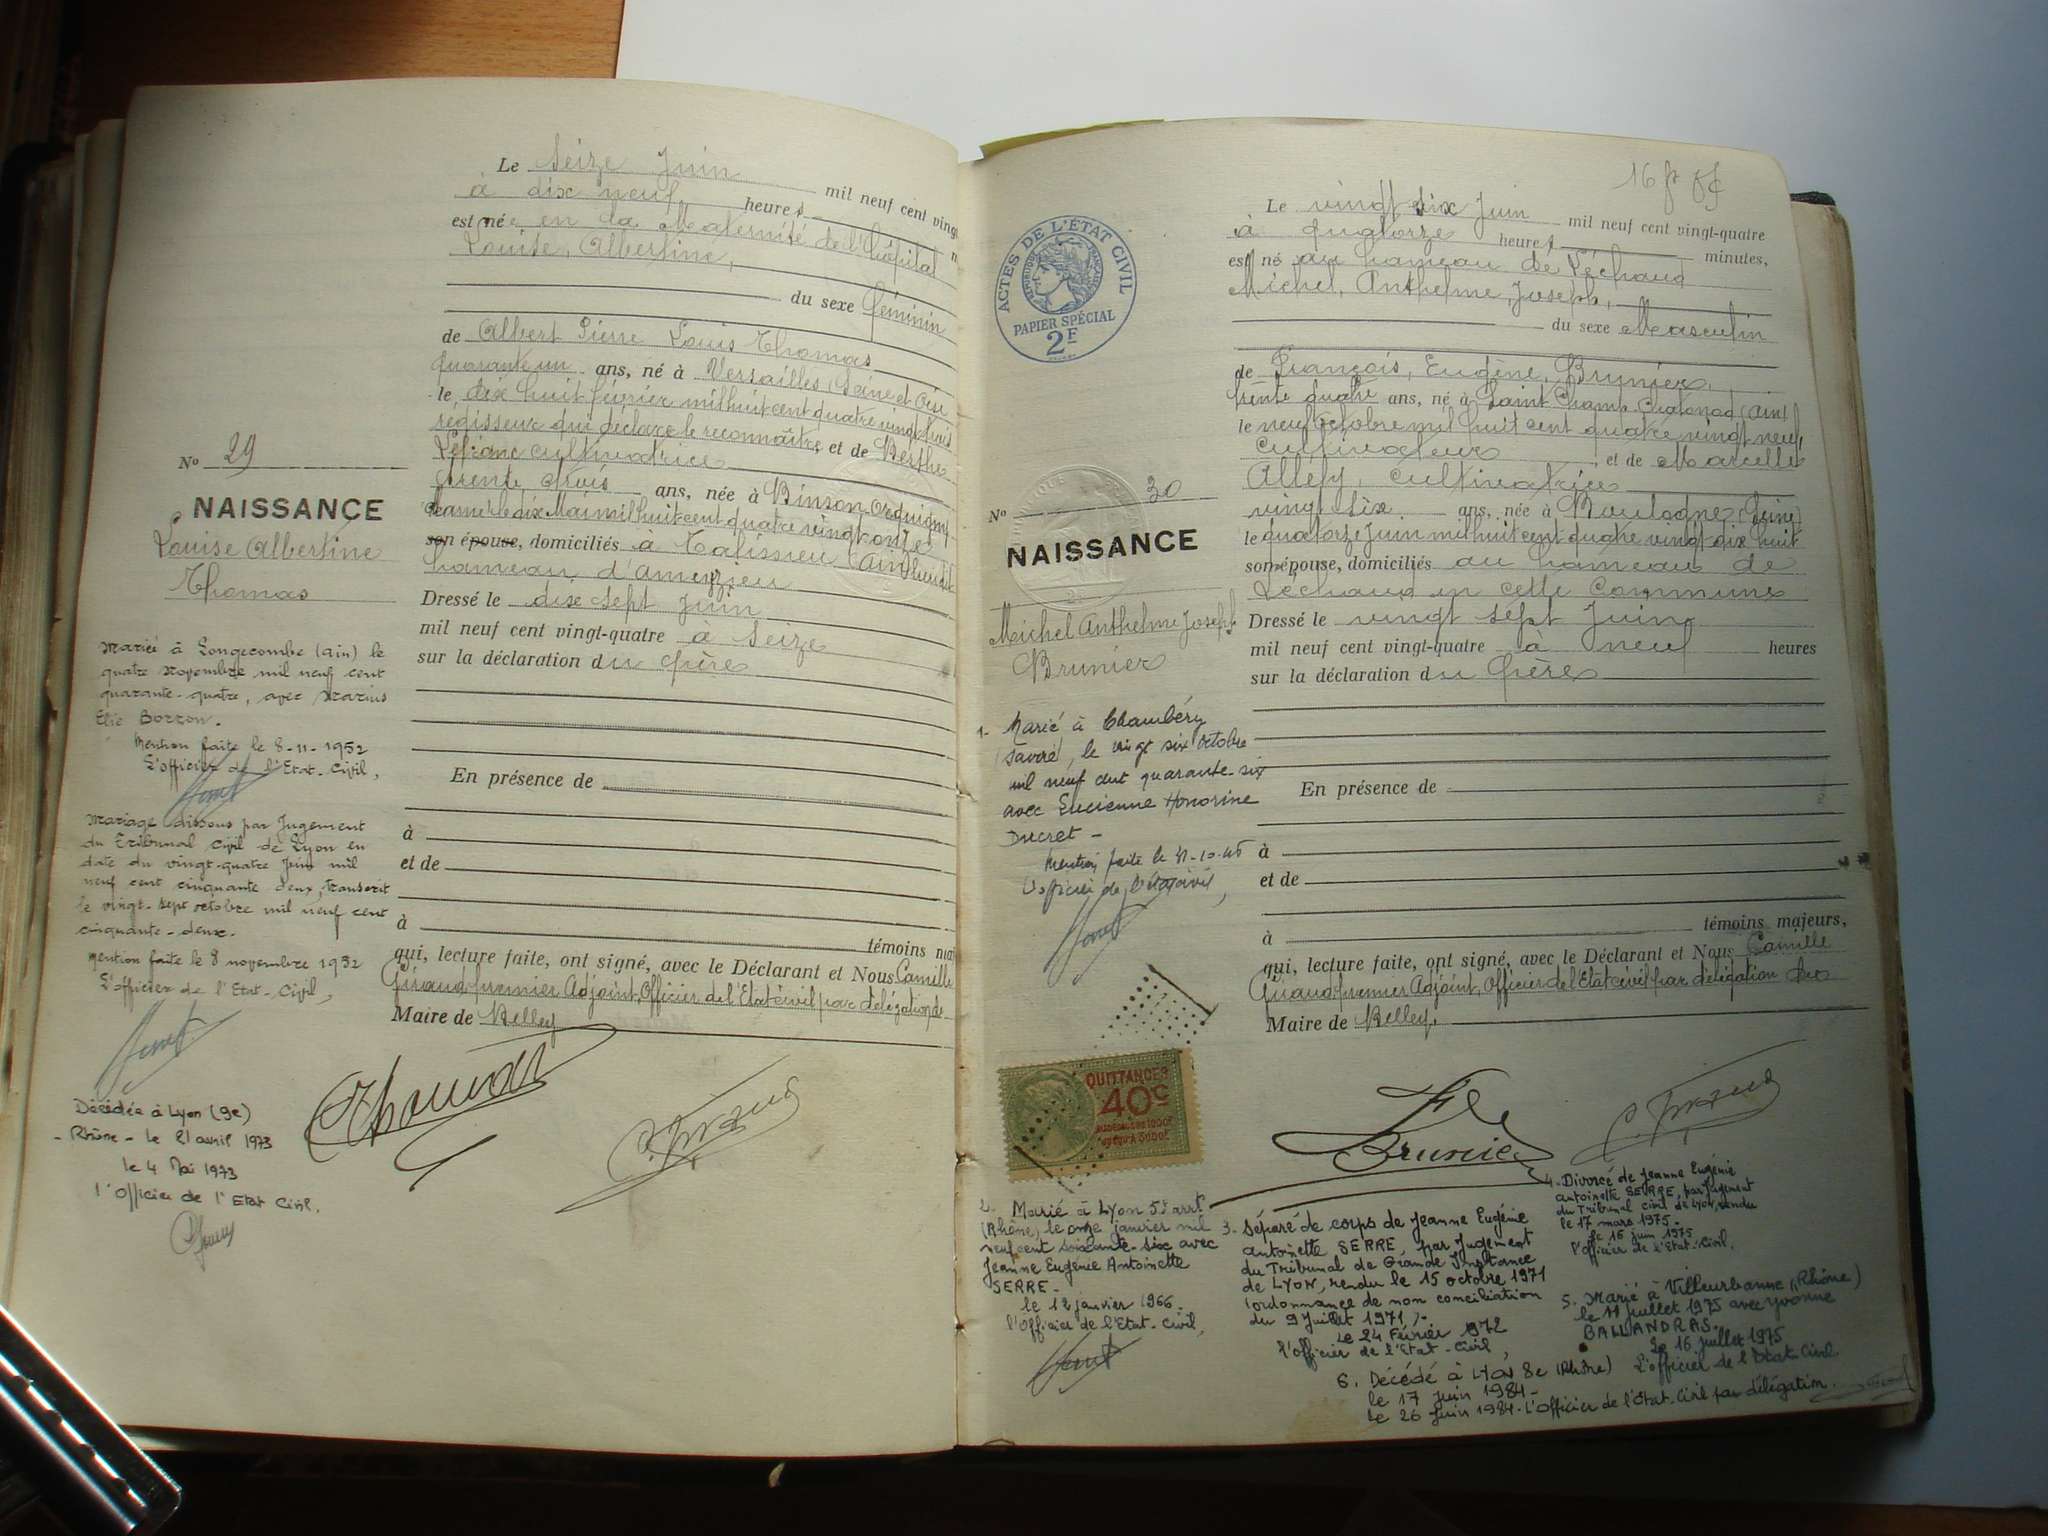 Le Seize Juin mil neuf cent vingt
à dix neuf heures
est née en la Maternité de l'hôpital
Louise, Albertine,
du sexe féminin
de Albert Pierre Louis Thomas
quarante un ans, né à Versailles (Seine et Oise
le dix huit février mil huit cent quatre vingt trois
régisseur qui déclare le reconnaître, et de Berthe
Lefranc cultivatrice
trente trois ans, née à Binson Orquigny
Marne le dix Mai mil huit cent quatre vingt onze
son épouse, domiciliés à Talissieu (Ain)
hameau d'Ameyzieu
Dressé le dix sept Juin
mil neuf cent vingt-quatre à Seize
sur la déclaration du Père
En présence de
à
et de
à témoins maj
qui, lecture faite, ont signé, avec le Déclarant et Nous Camille
Giraud premier Adjoint, Officier de l'Etat civil par délégation du
Maire de Belley
Thomas
C. Giraud
No 29
NAISSANCE
Louise Albertine
Thomas
Mariée à Songecombe (Ain) le
quatre Novembre mil neuf cent
quarante-quatre, avec Marius
Elie Borron.
Mention faite le 8-11-1952
L'officier de l'Etat-Civil,
Mariage dissous par Jugement
du Tribunal Civil de Lyon en
date du vingt-quatre Juin mil
neuf cent cinquante deux, transcrit
le vingt-sept octobre mil neuf cent
cinquante-deux.
Mention faite le 8 novembre 1952
L'officier de l'Etat-Civil,
Décédée à Lyon (9e)
-Rhône- le 21 avril 1973
le 4 Mai 1973
l'Officier de l'Etat Civil.
16 f
ACTES DE L'ÉTAT CIVIL
RÉPUBLIQUE FRANÇAISE
PAPIER SPÉCIAL
2F
Le vingt six Juin mil neuf cent vingt-quatre
à quatorze heures minutes,
est né au hameau de Léchaud
Michel, Anthelme, Joseph,
du sexe Masculin
de François, Eugène, Brunier,
trente quatre ans, né à Saint Champ Chatonod (Ain)
le neuf Octobre mil huit cent quatre vingt neuf,
cultivateur, et de Marcelle
Alléfy, cultivatrice
vingt six ans, née à Boulogne (Seine)
le quatorze Juin mil huit cent quatre vingt dix huit
son épouse, domiciliés au hameau de
Léchaud en cette Commune
Dressé le vingt sept Juin
mil neuf cent vingt-quatre à neuf heures
sur la déclaration du Père
En présence de
à
et de
à témoins majeurs,
qui, lecture faite, ont signé, avec le Déclarant et Nous Camille
Giraud premier Adjoint, Officier de l'Etat civil par délégation du
Maire de Belley,
No 30
NAISSANCE
Michel Anthelme Joseph
Brunier
1- Marié à Chambéry
(Savoie), le vingt six octobre
mil neuf cent quarante-six
avec Lucienne Honorine
Ducret -
Mention faite le 31-10-46
L'officier de l'état civil,
QUITTANCES
40c
Brunier
C. Giraud
2. Marié à Lyon 5e arrt
(Rhône), le onze janvier mil
neuf cent soixante-six avec
Jeanne Eugénie Antoinette
SERRE.
le 12 janvier 1966.
l'officier de l'Etat-Civil,
3. Séparé de corps de Jeanne Eugénie
Antoinette SERRE, par Jugement
du Tribunal de Grande Instance
de LYON, rendu le 15 octobre 1971
(ordonnance de non conciliation
du 9 Juillet 1971).
Le 24 Février 1972
l'officier de l'Etat-Civil,
4. Divorcé de Jeanne Eugénie
Antoinette SERRE, par Jugement
du Tribunal civil de Lyon, rendu
le 17 mars 1975.
le 16 juin 1975
l'officier de l'Etat-Civil.
5. Marié à Villeurbanne (Rhône)
le 11 juillet 1975 avec Yvonne
BALLANDRAS.
Le 16 juillet 1975
L'officier de l'Etat-Civil
6. Décédé à LYON 8e (Rhône)
le 17 Juin 1984.
Le 26 Juin 1984. L'Officier de l'Etat-Civil par délégation.